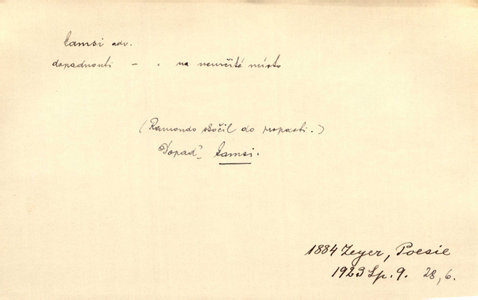 kamsi adv.
dopadnouti - . na neurčité místo
(Ramondo skočil do propasti.)
Dopad' kamsi.
1884 Zeyer, Poesie
1923 Sp. 9. 28, 6.